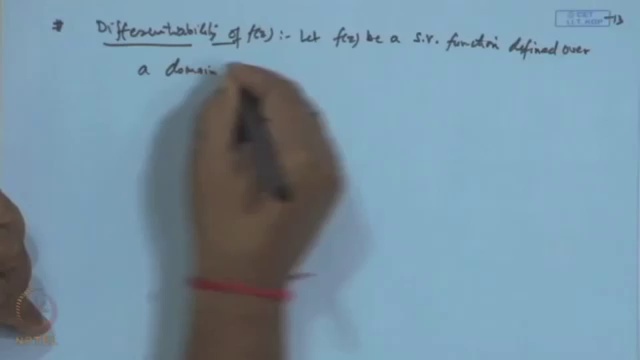 # Differentiability of f(z) :- Let f(z) be a S.V. function defined over
a domain
© CET
I.I.T. KGP
13
NPTEL